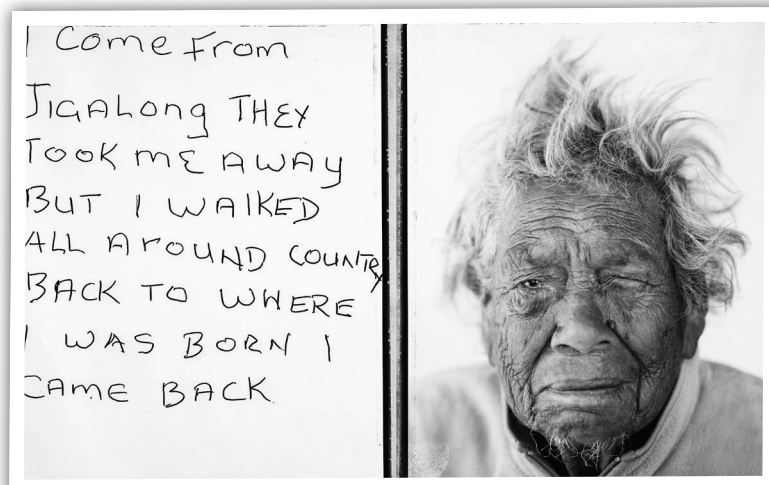 I Come From
JIGALong THEY
TOOK mE AWAY
BUT I WALKED
ALL ArOUND COUNTRY
BACK TO WHERE
I WAS BORN I
CAME BACK